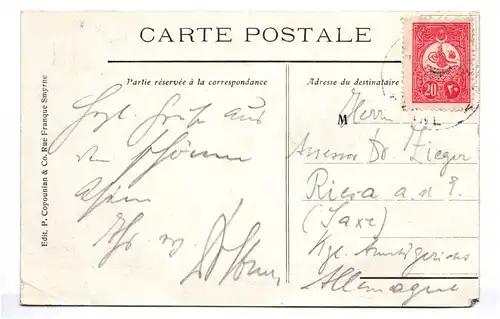 CARTE POSTALE
Partie réservée à la correspondance
Adresse du destinataire
Edit. P. Coyounian & Co. Rue Franque Smyrne
20 ٢٠
Herzl. Grüße aus
dem schönen
Asien
Ihr
M Herrn
Assessor Dr. Zieger
Riesa a. d. E.
(Saxe)
Kgl. Amtsgericht
Allemagne